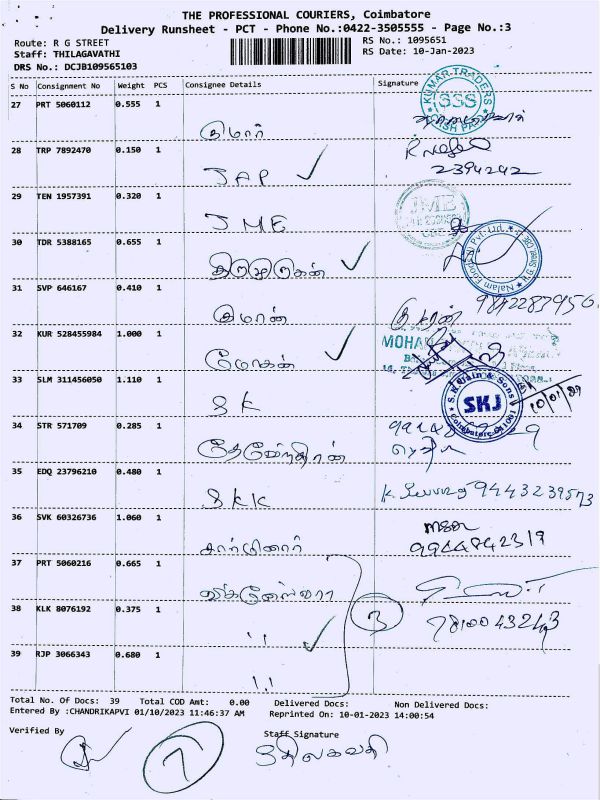 THE PROFESSIONAL COURIERS, Coimbatore
Delivery Runsheet - PCT - Phone No.:0422-3505555 - Page No.:3
Route: R G STREET
Staff: THILAGAVATHI
DRS No.: DCJB109565103
RS No.: 1095651
RS Date: 10-Jan-2023
S No Consignment No Weight PCS Consignee Details Signature
27 PRT 5060112 0.555 1 குமார்
KUMAR TRADERS
SSS
28 TRP 7892470 0.150 1 JAP ✓
2394242
29 TEN 1957391 0.320 1 JME
JMB
30 TDR 5388165 0.655 1 திருமுருகன் ✓
Nalam Foods Pvt. Ltd.
31 SVP 646167 0.410 1 குமரன்
32 KUR 528455984 1.000 1 மோகன் ✓
MOHAN
33 SLM 311456050 1.110 1 SK
S.K. Jain & Sons
SKJ
Coimbatore-641001
34 STR 571709 0.285 1
35 EDQ 23796210 0.480 1 SKK
9443239573
36 SVK 60326736 1.060 1
9944842319
37 PRT 5060216 0.665 1 விக்னேஸ்வரா
38 KLK 8076192 0.375 1 " ✓
3
39 RJP 3066343 0.680 1 "
Total No. Of Docs: 39 Total COD Amt: 0.00 Delivered Docs: Non Delivered Docs:
Entered By :CHANDRIKAPVI 01/10/2023 11:46:37 AM Reprinted On: 10-01-2023 14:00:54
Verified By
Staff Signature
7
திலகவதி